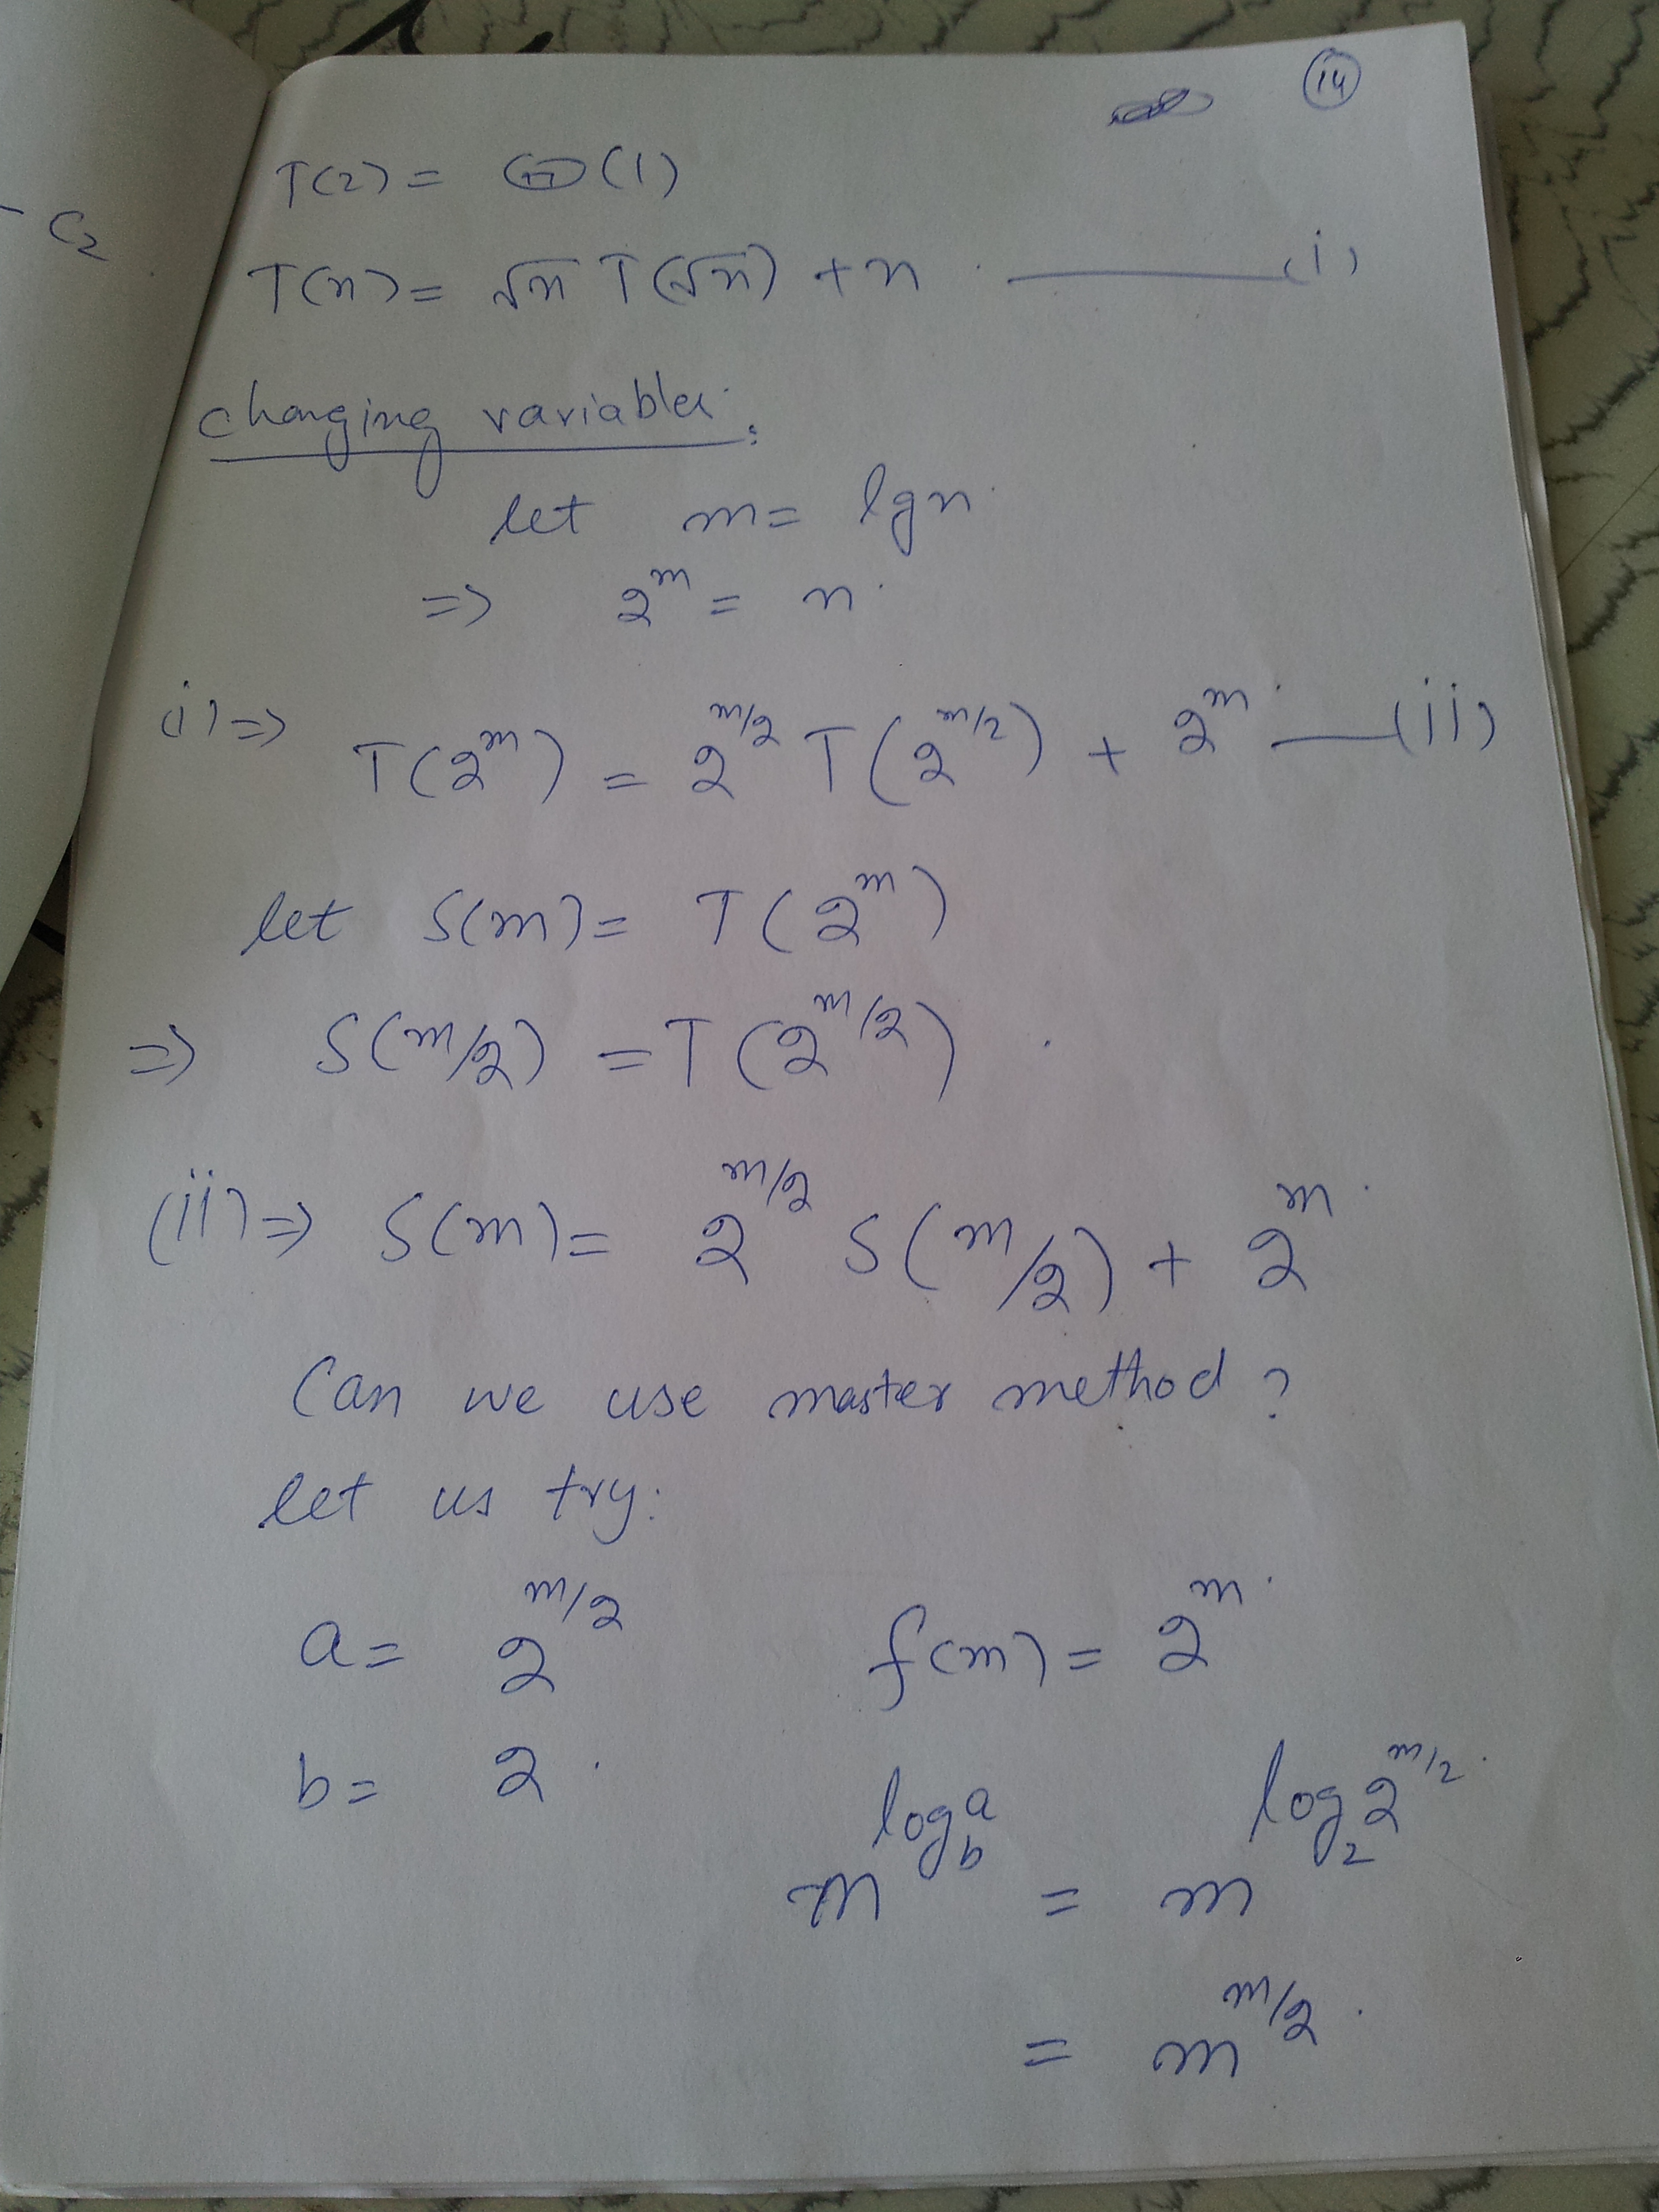 - C2
(14)
T(2) = Θ(1)
T(n) = √n T(√n) + n. ——— i)
Changing variable:
let m = lg n.
=> 2^m = n.
i) => T(2^m) = 2^{m/2} T(2^{m/2}) + 2^m. ——— (ii)
let S(m) = T(2^m)
=> S(m/2) = T(2^{m/2}).
(ii) => S(m) = 2^{m/2} S(m/2) + 2^m.
Can we use master method?
let us try:
a = 2^{m/2} f(m) = 2^m.
b = 2.
m^{log_b a} = m^{log_2 2^{m/2}}.
= m^{m/2}.